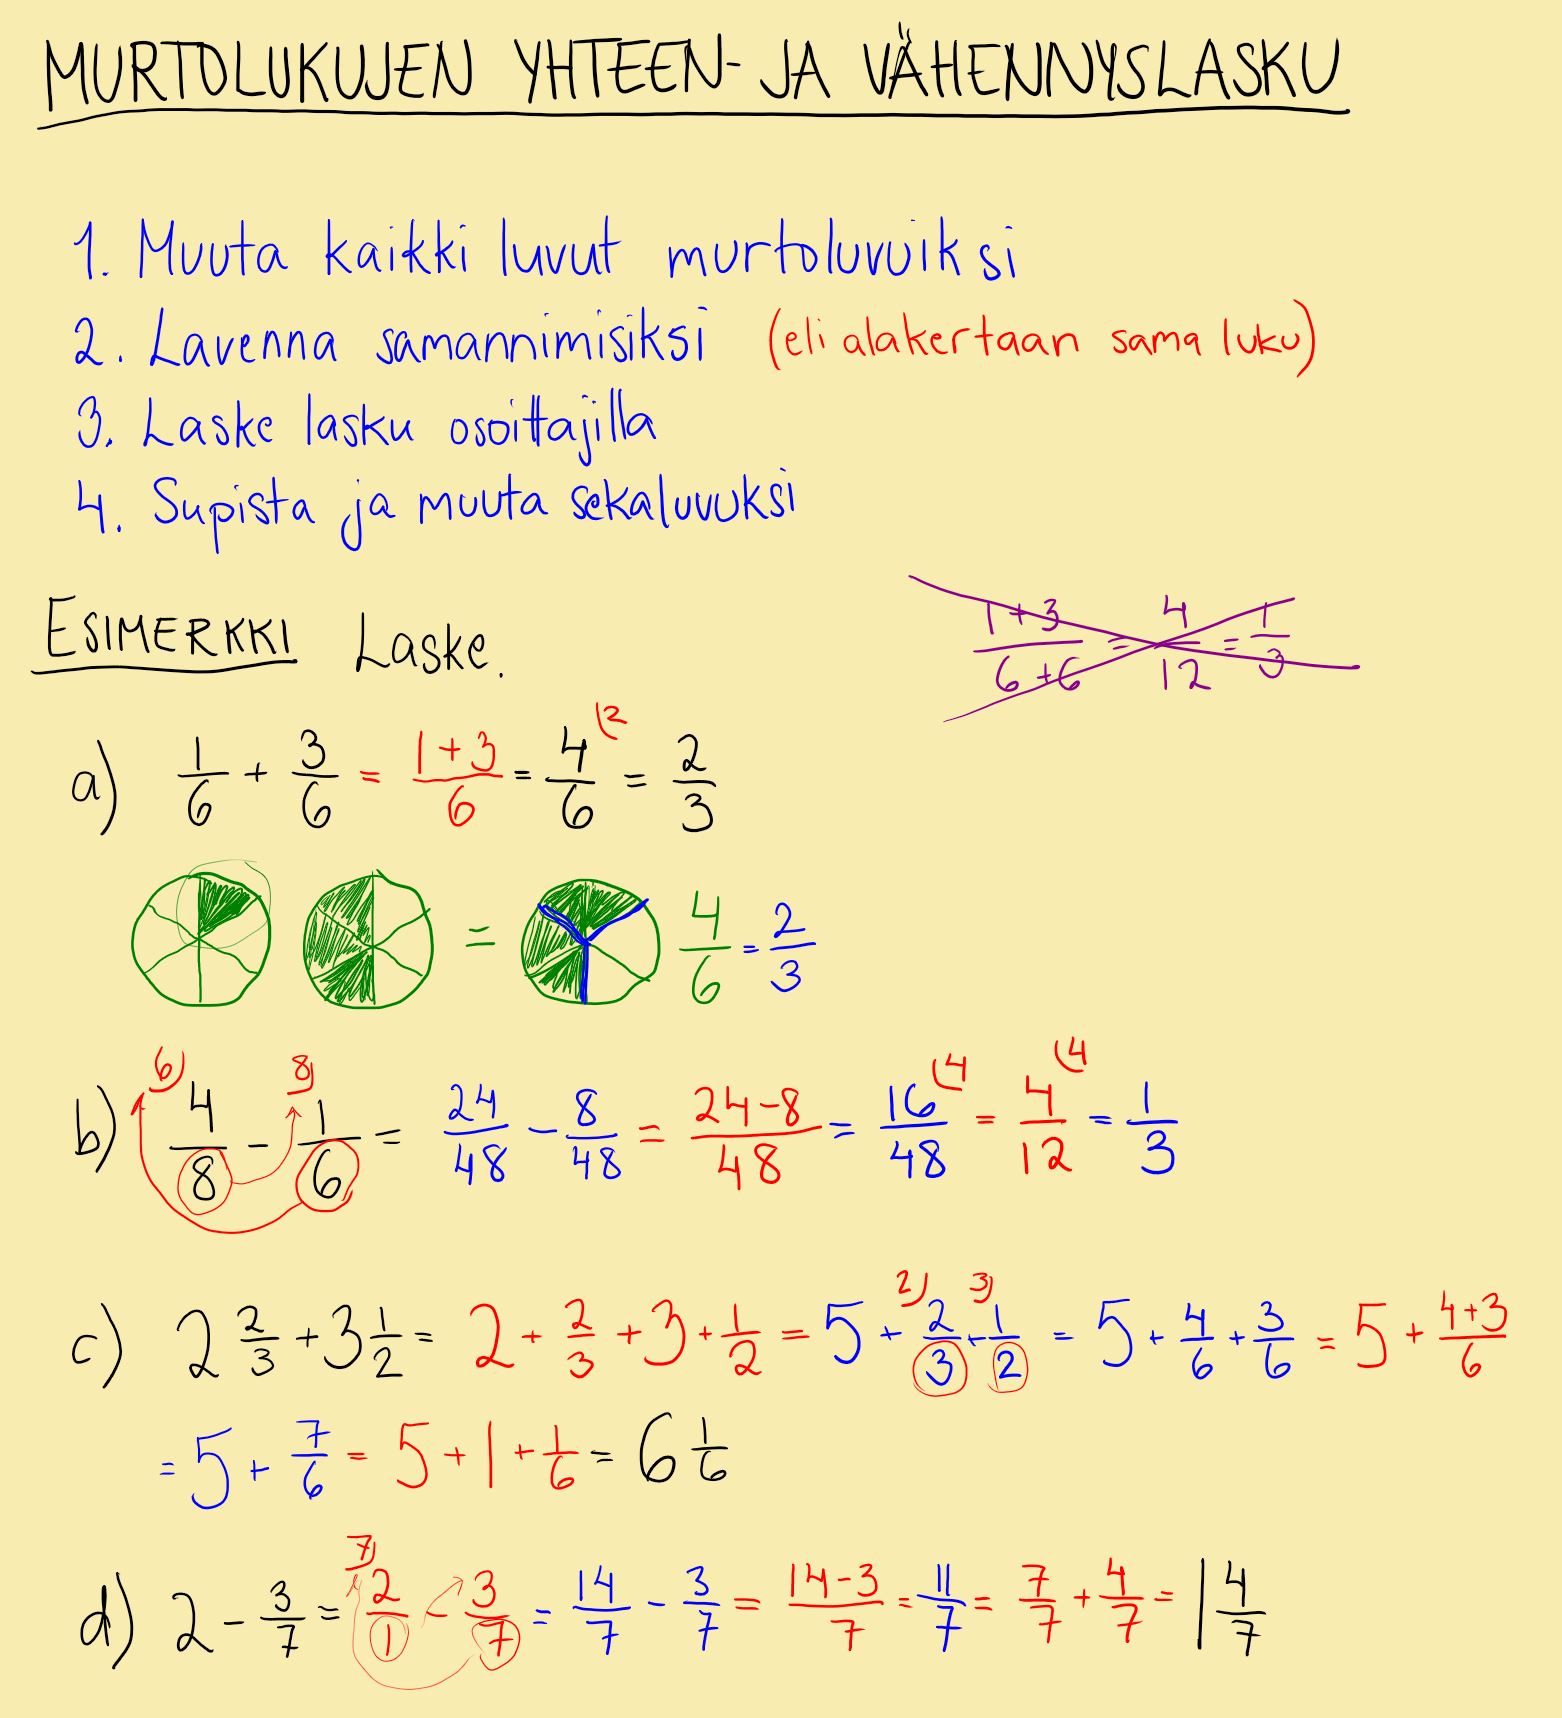 MURTOLUKUJEN YHTEEN- JA VÄHENNYSLASKU
1. Muuta kaikki luvut murtoluvuiksi
2. Lavenna samannimisiksi (eli alakertaan sama luku)
3. Laske lasku osoittajilla
4. Supista ja muuta sekaluvuksi
ESIMERKKI Laske.
(1+3)/(6+6) = 4/12 = 1/3
a) 1/6 + 3/6 = (1+3)/6 = 4/6 (2 = 2/3
= 4/6 = 2/3
b) 6) 4/8 - 8) 1/6 = 24/48 - 8/48 = (24-8)/48 = 16/48 (4 = 4/12 (4 = 1/3
c) 2 2/3 + 3 1/2 = 2 + 2/3 + 3 + 1/2 = 5 + 2) 2/3 + 3) 1/2 = 5 + 4/6 + 3/6 = 5 + (4+3)/6
= 5 + 7/6 = 5 + 1 + 1/6 = 6 1/6
d) 2 - 3/7 = 7) 2/1 - 3/7 = 14/7 - 3/7 = (14-3)/7 = 11/7 = 7/7 + 4/7 = 1 4/7